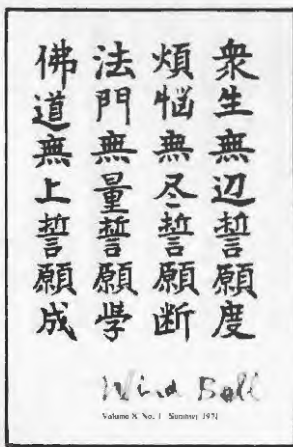 衆生無辺誓願度
煩悩無尽誓願断
法門無量誓願學
佛道無上誓願成
Wind Bell
Volume X No. 1 Summer, 1971